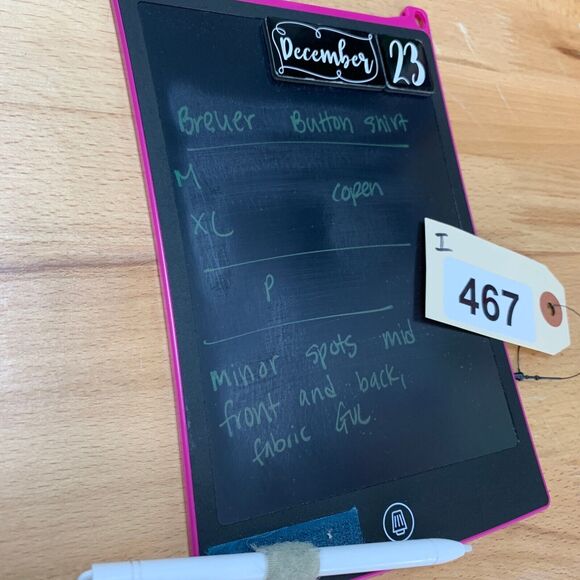 December 23
Breuer Button shirt
M
copen
XL
I
467
P
Minor spots mid
front and back,
fabric GUC.